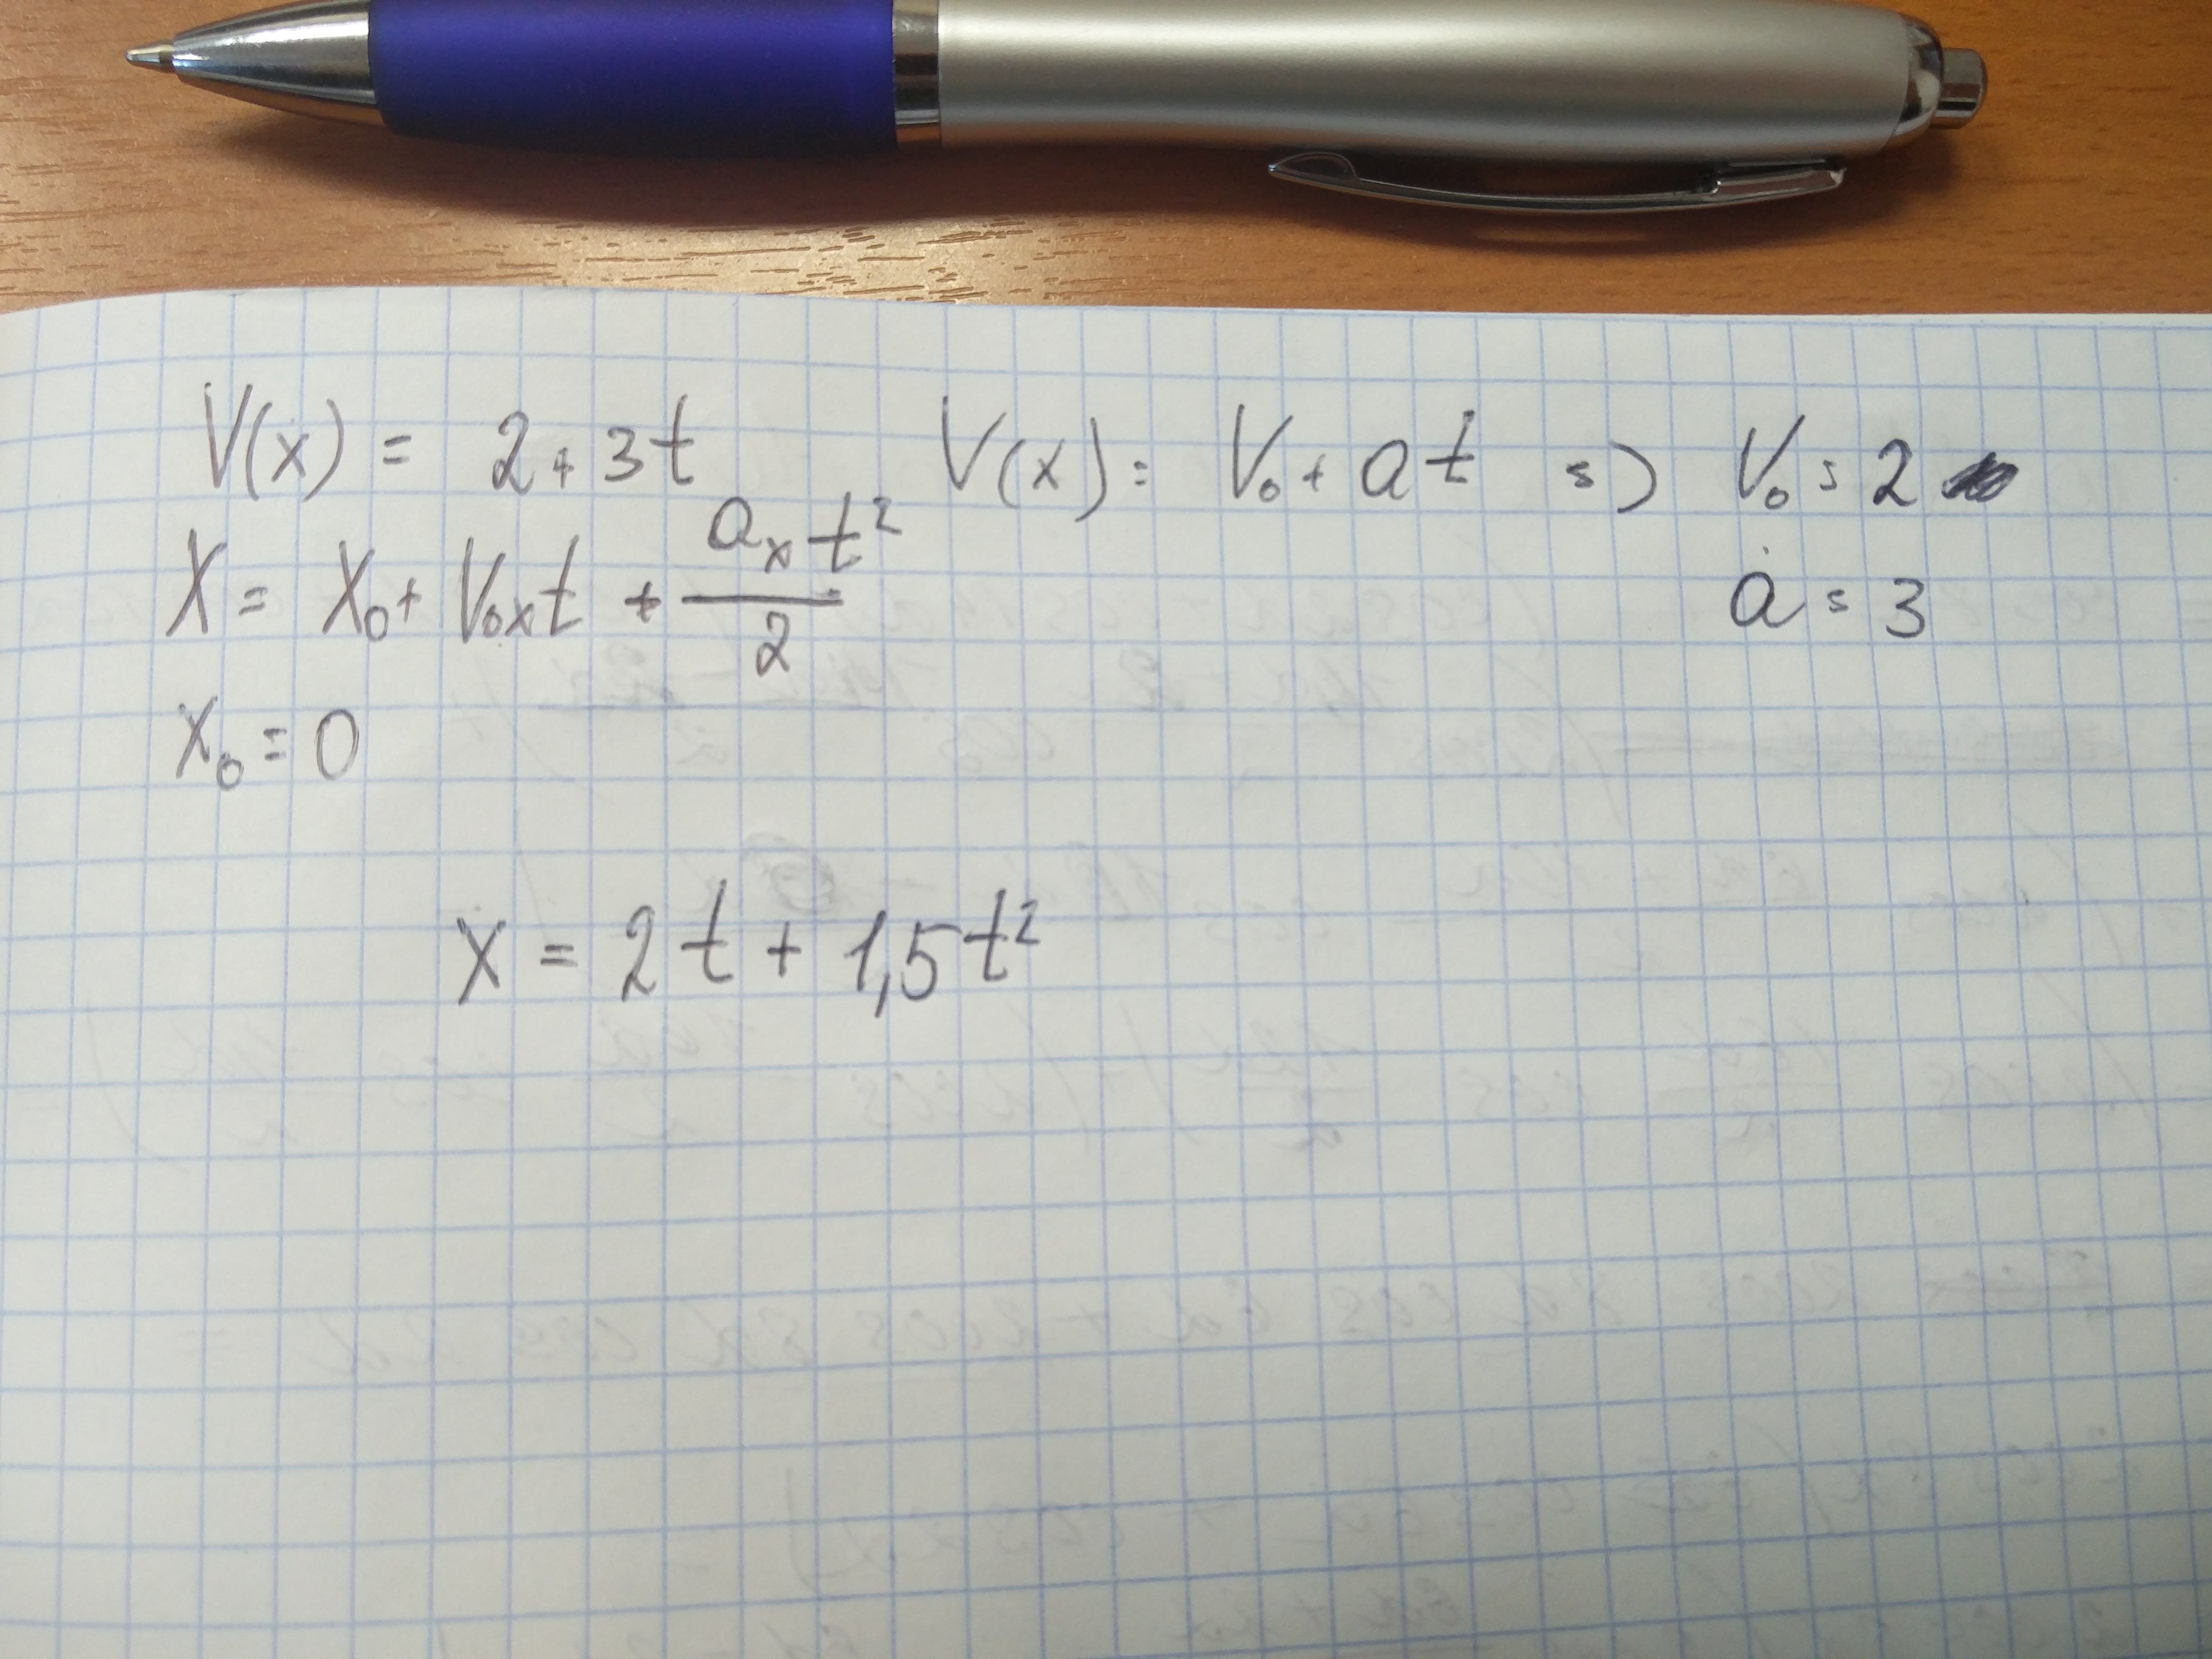 V(x) = 2 + 3t V(x) = V₀ + at => V₀ = 2
X = X₀ + V₀ₓt + aₓt²/2 a = 3
X₀ = 0
X = 2t + 1,5t²